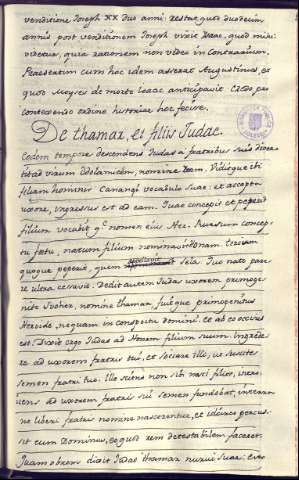 venditione Joseph XX duo anni: restat quod duodecim
annis post venditionem Joseph vixit Isaac, quod mihi
videtur, quia rationem non video in contrarium.
Praesertim cum hoc idem asserat Augustinus, et
quod Moyses de morte Isaac anticipavit
ordine historiae hoc fecisse.
De thamar, et filiis Judae.
Eodem tempore descendens Judas a fratribus suis diver
tit ad virum Odolamitem, nomine Viditque ibi
filiam hominis Cananaei vocabulo Suae: et accepta
uxore, ingressus est ad eam. Quae concepit et peperit
filium vocabit nomen eius Her. Rursum concep
to fetu, natum filium nominavit Onam. Tertium
quoque peperit, quem appellavit Sela. Quo nato pare
re ultra cessavit. Dedit autem Judas uxorem primoge
nito suo her, nomine thamar, fuitque primogenitus
nequam in conspectu domini: et ab eo occisus
est. Dixit ergo Judas ad Honam filium suum: Ingrede
re ad uxorem fratris tui, et sociare illi, ut suscites
semen fratri tuo. Ille sciens non sibi nasci filios, introi
ens ad uxorem fratris sui semen fundebat, in terram
ne liberi fratris nomine nascerentur, et idcirco percus
sit eum Dominus, eo quod rem detestabilem faceret.
Quam obrem dixit Judas thamar nurui suae: Esto